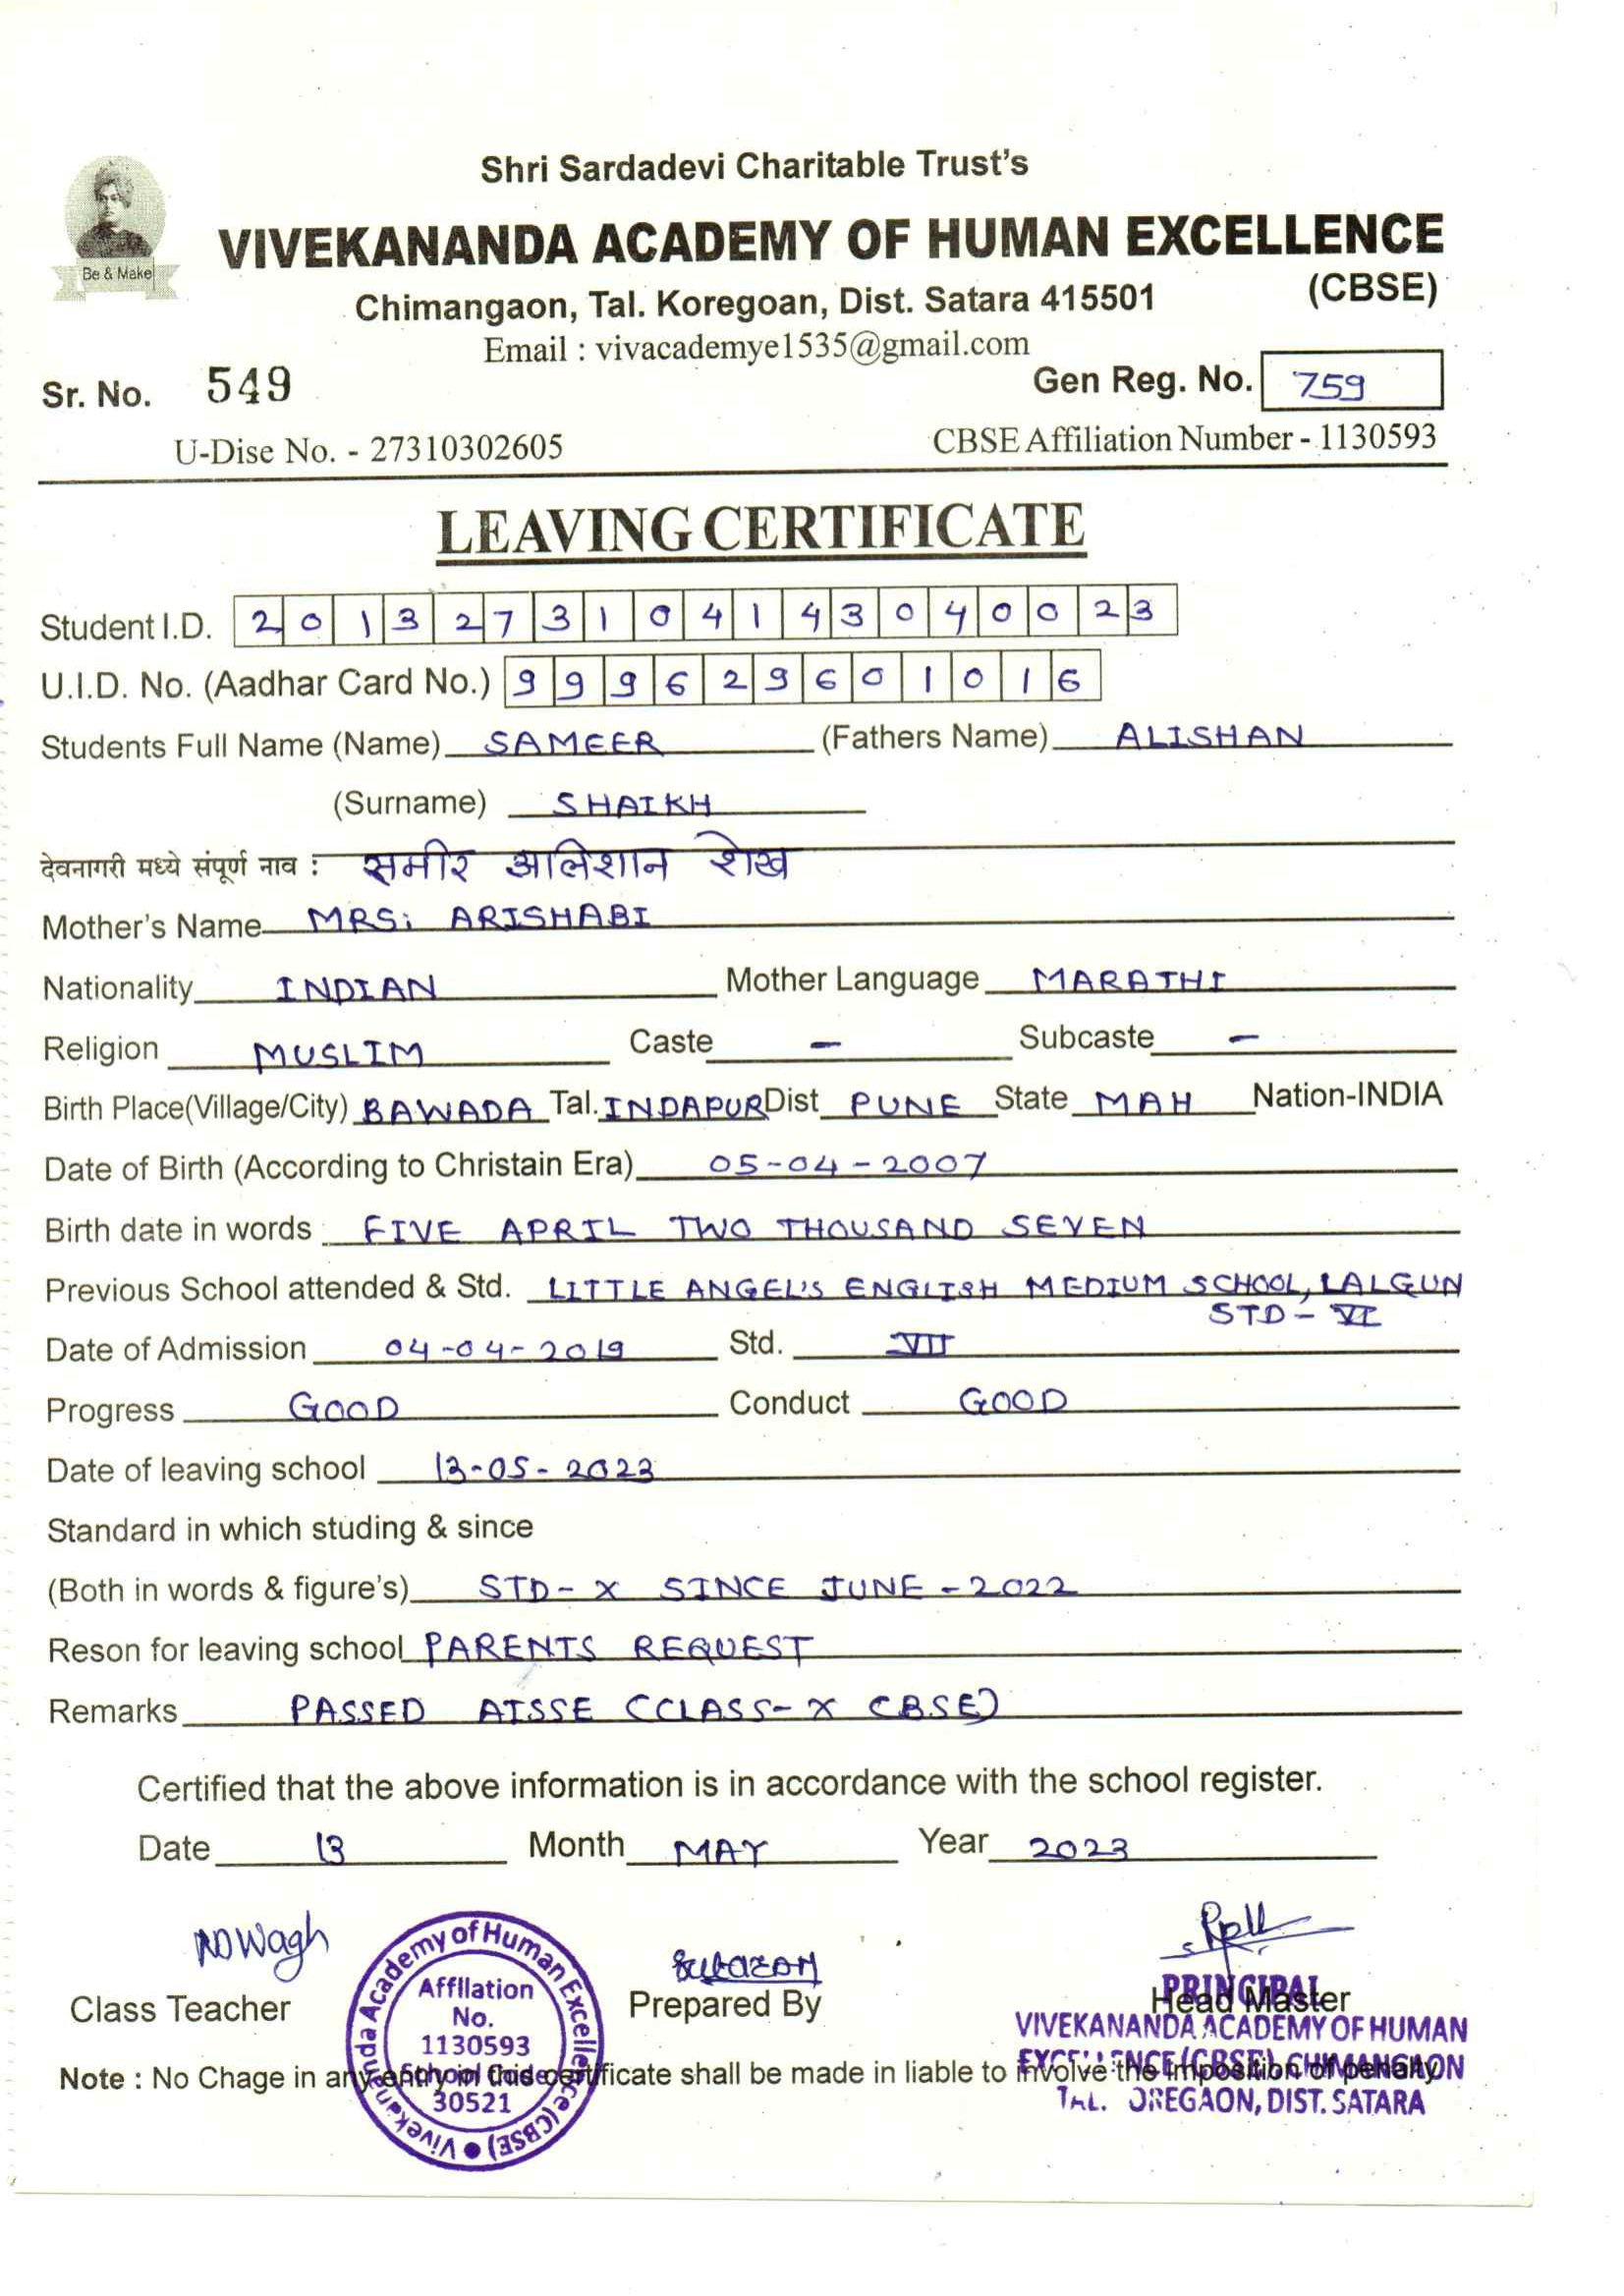 Shri Sardadevi Charitable Trust's
Be & Make
VIVEKANANDA ACADEMY OF HUMAN EXCELLENCE
(CBSE)
Chimangaon, Tal. Koregoan, Dist. Satara 415501
Email : vivacademye1535@gmail.com
Sr. No. 549 Gen Reg. No. 759
U-Dise No. - 27310302605 CBSE Affiliation Number - 1130593
LEAVING CERTIFICATE
Student I.D. 2013273104143040023
U.I.D. No. (Aadhar Card No.) 999629601016
Students Full Name (Name) SAMEER (Fathers Name) ALISHAN
(Surname) SHAIKH
देवनागरी मध्ये संपूर्ण नाव : समीर अलिशान शेख
Mother's Name MRS: ARISHABI
Nationality INDIAN Mother Language MARATHI
Religion MUSLIM Caste - Subcaste -
Birth Place(Village/City) BAWADA Tal. INDAPUR Dist PUNE State MAH Nation-INDIA
Date of Birth (According to Christain Era) 05-04-2007
Birth date in words FIVE APRIL TWO THOUSAND SEVEN
Previous School attended & Std. LITTLE ANGEL'S ENGLISH MEDIUM SCHOOL, LALGUN
STD - VI
Date of Admission 04-04-2019 Std. VII
Progress GOOD Conduct GOOD
Date of leaving school 13-05-2023
Standard in which studing & since
(Both in words & figure's) STD - X SINCE JUNE - 2022
Reson for leaving school PARENTS REQUEST
Remarks PASSED AISSE (CLASS-X CBSE)
Certified that the above information is in accordance with the school register.
Date 13 Month MAY Year 2023
NDWagh
Class Teacher
Prepared By
Head Master
PRINCIPAL
VIVEKANANDA ACADEMY OF HUMAN
EXCELLENCE (CBSE), CHIMANGAON
TAL. OREGAON, DIST. SATARA
Vivekananda Academy of Human Excellence (CBSE)
Affilation
No.
1130593
School Code
30521
Note : No Chage in any entry in this certificate shall be made in liable to involve the imposition of penalty